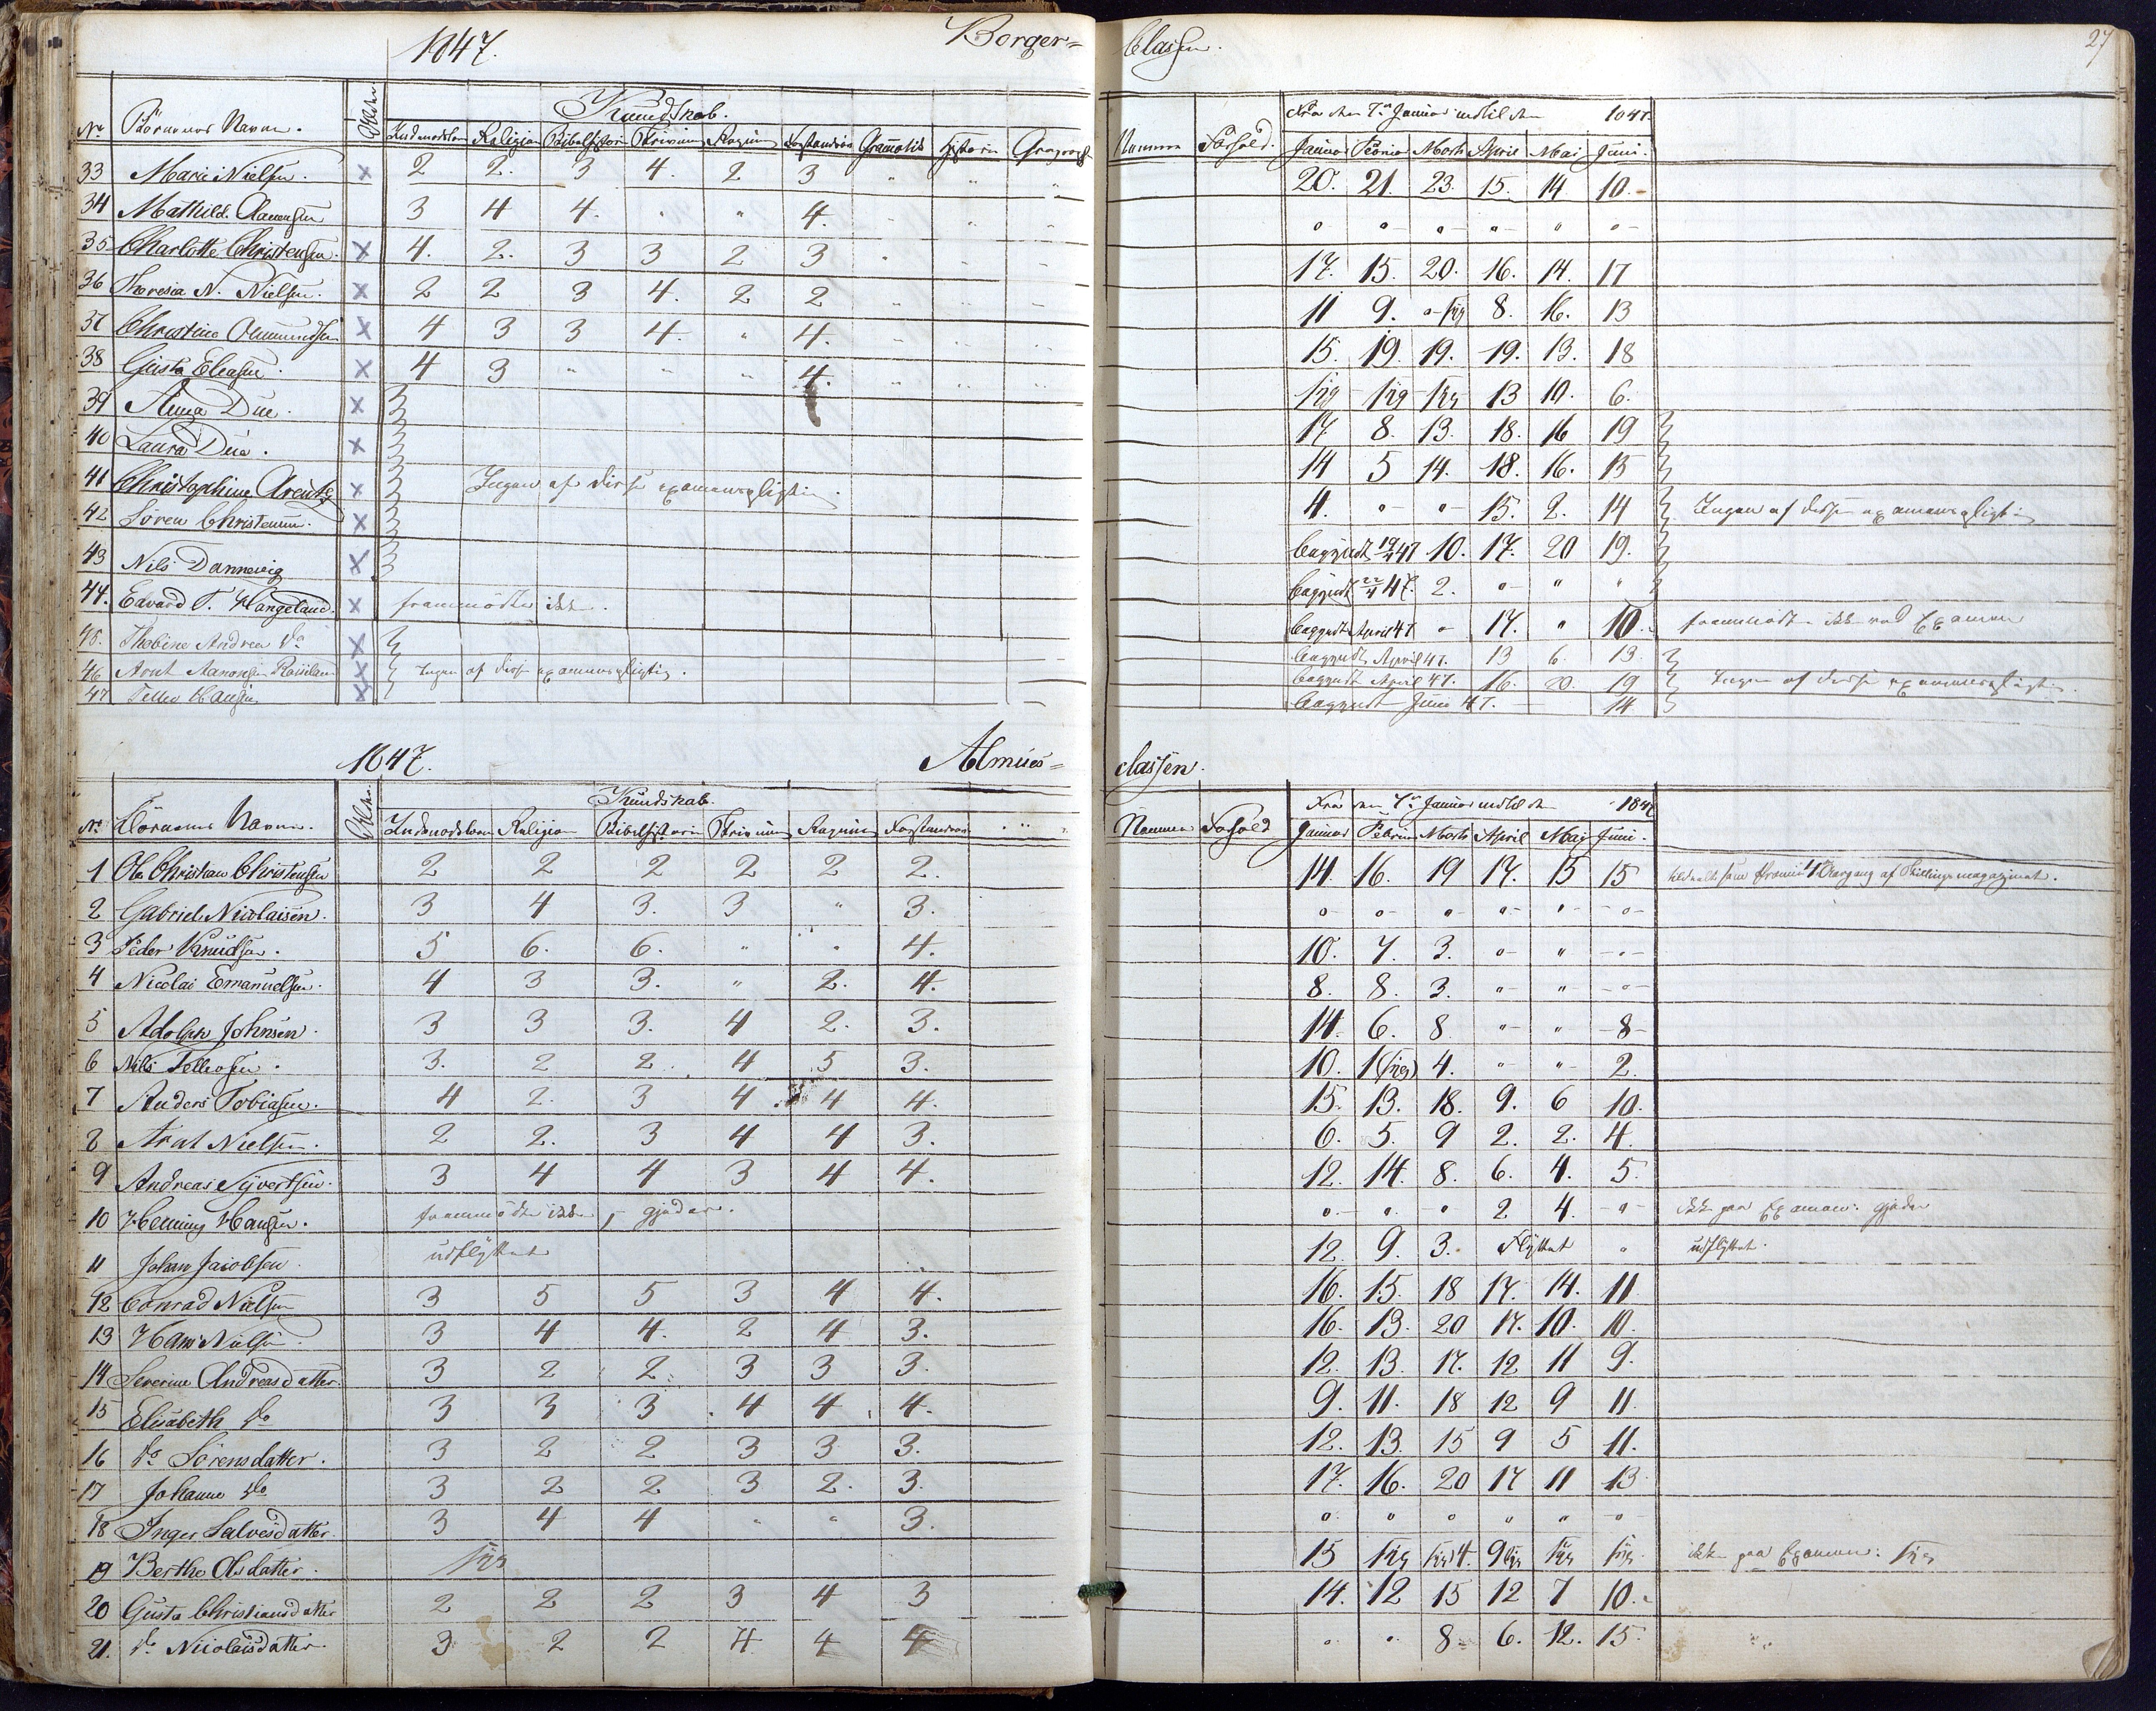 1847. Borger= Classen. 27
No Börnenes Navne. Alder Kundskab. Nummer Forhold. Fra den 7de Januar indtil den 1847.
Indenadslæsn Religion Bibelhistorie Skrivning Regning Forstandsøv Gramatik Historie Geographi Januar Februar Marts April Mai Juni.
33 Marie Nielsen. x 2 2. 3 4. 2 3 " " " 20. 21. 23. 15. 14 10.
34 Mathild. Clausen 3 4 4. " " 4. " " " " " " " " "
35 Charlotte Christensen. x 4. 2. 3 3 2 3 " " " 17. 15. 20. 16. 14. 17
36 Theresia N. Nielsen. x 2 2 3 4. 2 2 " " " 11 9. " syg 8. 16. 13
37 Christine x 4 3 3 4. " 4. " " " 15. 19. 19. 19. 13. 18
38 Gusta Eleasen. x 4 3 " " " 4. " " " syg syg syg 13 10. 6.
39 Anna Due. x 17 8. 13. 18. 16 19
40 Laura Due. x 14 5 14. 18. 16. 15
41 Christophine Arentz x Ingen af disse examenspligtig. 4. " " 15. 2. 14 Ingen af disse examenspligtig
42 Sören Christensen. x begyndt 19/1 47 10. 17. 20 19.
43 Nils Dannevig x begyndt 22/1 47. 2. " " "
44. Edvard T. Hangeland. x fremmödte ikke. begyndt April 47 " 17. " 10. fremmödte ikke ved Examen
45. Thobine Andrea do x begyndt April 47. 13 6. 13.
46 Arnt Aanonsen x Ingen af disse examenspligtig. begyndt April 47. 16. 20. 19 Ingen af disse examenspligtig.
47 Tellev Hansen x begyndt Juni 47. 14
1847. Almues= classen.
No Börnenes Navne. Alder. Kundskab. Nummer Forhold Fra den 7de Januar indtil den 1847
Indenadslæsn Religion Bibelhistorie Skrivning Regning Forstandsøv " " Januar Februar Marts April Mai Juni.
1 Ole Christian Christensen 2 2 2 2 2 2. 14. 16. 19 17. 15 15 tildeelt som Præmie 1 Aargang af Skillingsmagazinet.
2 Gabriel Nicolaisen. 3 4 3. 3 " 3. " " " " " "
3 Peder Knudsen. 5 6. 6. " " 4. 10. 7. 3. " " "
4 Nicolai Emanuelsen. 4 3 3. " 2. 4. 8. 8. 3. " " "
5 Adolph Johnsen. 3 3 3. 4 2. 3. 14. 6. 8 " " 8
6 Nils Tellefsen. 3. 2 2. 4 5 3. 10. 1 (syg) 4. " " 2.
7 Anders Tobiasen. 4 2. 3 4. 4 4. 15. 13. 18. 9. 6 10.
8 Arnt Nielsen. 2 2. 3 4 4 3. 6. 5. 9 2. 2. 4.
9 Andreas Syvertsen. 3 4 4 3 4 4. 12. 14. 8. 6. 4. 5.
10 Henning Hansen. fremmödte ikke, gjeder. " " " 2 4. " ikke paa Examen: gjeder
11 Johan Jacobsen. udflyttet 12. 9. 3. Flyttet " udflyttet.
12 Conrad Nielsen 3 5 5 3 4 4. 16. 15. 18 17. 14. 11
13 Hans Nielsen. 3 4 4. 2 4 3. 16. 13. 20 17. 10. 10.
14 Severine Andreasdatter. 3 2 2. 3 3 3. 12. 13. 17. 12 11 9.
15 Elisabeth do 3 3 3. 4 4. 4. 9. 11. 18 12 9 11.
16 do Sörensdatter. 3 2 2 3 3 3. 12. 13. 15 9 5 11.
17 Johanne do 3 2 2 3 2. 3. 17. 16. 20 17 11 13
18 Inger Salvesdatter. 3 4 4 " " 3. " " " " " "
19 Berthe Olsdatter. syg 15 syg syg 4. 9 syg syg syg. ikke paa Examen: syg
20 Gusta Christiansdatter 2 2 2 3 4 3 14. 12 15 12 7 10.
21. do Nicolaisdatter. 3 2 2 4 4 4 " " 8 6. 12. 15.